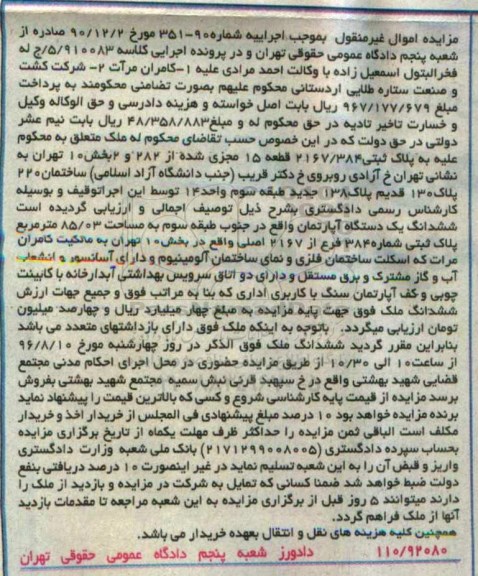 مزایده اموال غیرمنقول بموجب اجراییه شماره ۹۰-۳۵۱ مورخ ۹۰/۱۲/۲ صادره از
شعبه پنجم دادگاه عمومی حقوقی تهران و در پرونده اجرایی کلاسه ۵/۹۱۰۰۸۳/ج له
فخرالبتول اسمعیل زاده با وکالت احمد مرادی علیه ۱-کامران مرآت ۲- شرکت کشت
و صنعت ستاره طلایی اردستانی محکوم علیهم بصورت تضامنی محکومند به پرداخت
مبلغ ۹۶۷/۱۷۷/۶۷۹ ریال بابت اصل خواسته و هزینه دادرسی و حق الوکاله وکیل
و خسارت تاخیر تادیه در حق محکوم له و مبلغ ۴۸/۳۵۸/۸۸۳ ریال بابت نیم عشر
دولتی در حق دولت که در این خصوص حسب تقاضای محکوم له ملک متعلق به محکوم
علیه به پلاک ثبتی ۲۱۶۷/۳۸۴ قطعه ۱۵ مجزی شده از ۲۸۲ و ۲بخش۱۰ تهران به
نشانی تهران خ آزادی روبروی خ دکتر قریب (جنب دانشگاه آزاد اسلامی) ساختمان ۲۲۰
پلاک ۱۳۰ قدیم پلاک ۱۳۸ جدید طبقه سوم واحد ۱۴ توسط این اجرا توقیف و بوسیله
کارشناس رسمی دادگستری بشرح ذیل توصیف اجمالی و ارزیابی گردیده است
ششدانگ یک دستگاه آپارتمان واقع در جنوب طبقه سوم به مساحت ۸۵/۰۳ مترمربع
پلاک ثبتی شماره ۳۸۴ فرع از ۲۱۶۷ اصلی واقع در بخش ۱۰ تهران به مالکیت کامران
مرات که اسکلت ساختمان فلزی و نمای ساختمان آلومینیوم و دارای آسانسور و انشعاب
آب و گاز مشترک و برق مستقل و دارای دو اتاق سرویس بهداشتی آبدارخانه با کابینت
چوبی و کف آپارتمان سنگ با کاربری اداری که بنا به مراتب فوق و جمیع جهات ارزش
ششدانگ ملک فوق جهت پایه مزایده به مبلغ چهار میلیارد ریال و چهارصد میلیون
تومان ارزیابی میگردد. باتوجه به اینکه ملک فوق دارای بازداشتهای متعدد می باشد
بنابراین مقرر گردید ششدانگ ملک فوق الذکر در روز چهارشنبه مورخ ۹۶/۸/۱۰
از ساعت ۱۰ الی ۱۰/۳۰ از طریق مزایده حضوری در محل اجرای احکام مدنی مجتمع
قضایی شهید بهشتی واقع در خ سپهبد قرنی نبش سمیه مجتمع شهید بهشتی بفروش
برسد مزایده از قیمت پایه کارشناسی شروع و کسی که بالاترین قیمت را پیشنهاد نماید
برنده مزایده خواهد بود ۱۰ درصد مبلغ پیشنهادی فی المجلس از خریدار اخذ و خریدار
مکلف است الباقی ثمن مزایده را حداکثر ظرف مهلت یکماه از تاریخ برگزاری مزایده
بحساب سپرده دادگستری (۲۱۷۱۲۹۹۰۰۸۰۰۵) بانک ملی شعبه وزارت دادگستری
واریز و قبض آن را به این شعبه تسلیم نماید در غیر اینصورت ۱۰ درصد دریافتی بنفع
دولت ضبط خواهد شد ضمنا کسانی که تمایل به شرکت در مزایده و بازدید از ملک را
دارند میتوانند ۵ روز قبل از برگزاری مزایده به این شعبه مراجعه تا مقدمات بازدید
آنها از ملک فراهم گردد.
همچنین کلیه هزینه های نقل و انتقال بعهده خریدار می باشد.
۱۱۰/۹۲۰۸۰ دادورز شعبه پنجم دادگاه عمومی حقوقی تهران